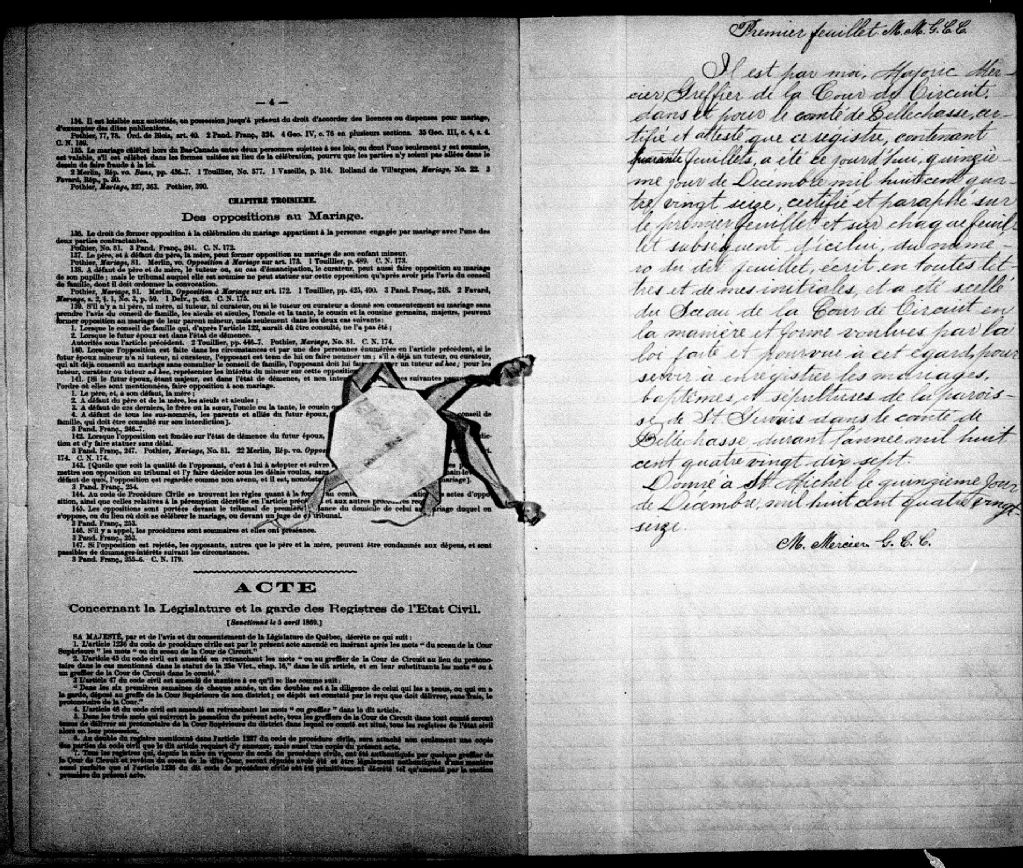 — 4 —
134. Il est loisible aux autorités, en possession jusqu'à présent du droit d'accorder des licences ou dispenses pour mariage,
d'exempter des dites publications.
Pothier, 77, 78. Ord. de Blois, art. 40. 2 Pand. Franç., 324. 4 Geo. IV, c. 76 en plusieurs sections. 35 Geo. III, c. 4, s. 4.
C. N. 169.
135. Le mariage célébré hors du Bas-Canada entre deux personnes sujettes à ses lois, ou dont l'une seulement y est soumise,
est valable, s'il est célébré dans les formes usitées au lieu de la célébration, pourvu que les parties n'y soient pas allées dans le
dessein de faire fraude à la loi.
2 Merlin, Rép. vo. Bans, pp. 436-7. 1 Touillier, No. 577. 1 Vazeille, p. 314. Rolland de Villargues, Mariage, No. 22. 3
Favard, Rép., p. 30.
Pothier, Mariage, 327, 363. Pothier, 390.
CHAPITRE TROISIEME.
Des oppositions au Mariage.
136. Le droit de former opposition à la célébration du mariage appartient à la personne engagée par mariage avec l'une des
deux parties contractantes.
Pothier, No. 81. 3 Pand. Franç., 241. C. N. 172.
137. Le père, et à défaut du père, la mère, peut former opposition au mariage de son enfant mineur.
Pothier, Mariage, 81. Merlin, vo. Opposition à Mariage sur art. 173. 1 Touillier, p. 489. C. N. 173.
138. A défaut de père et de mère, le tuteur ou, au cas d'émancipation, le curateur, peut aussi faire opposition au mariage
de son pupille; mais le tribunal auquel elle est soumise ne peut statuer sur cette opposition qu'après avoir pris l'avis du conseil
de famille, dont il doit ordonner la convocation.
Pothier, Mariage, 81. Merlin de Opposition à Mariage sur art. 172. 1 Touillier, pp. 425, 490. 3 Pand. Franç., 248. 2 Favard,
Mariage, s. 2, § 1, No. 3, p. 59. 1 Delv., p. 63. C. N. 175.
139. S'il n'y a ni père, ni mère, ni tuteur, ni curateur, ou si le tuteur ou curateur a donné son consentement au mariage sans
prendre l'avis du conseil de famille, les aïeuls et aïeules, l'oncle et la tante, le cousin et la cousine germains, majeurs, peuvent
former opposition au mariage de leur parent mineur, mais seulement dans les deux cas suivants:
1. Lorsque le conseil de famille qui, d'après l'article 122, aurait dû être consulté, ne l'a pas été;
2. Lorsque le futur époux est dans l'état de démence.
Autorités sous l'article précédent. 2 Touillier, pp. 446-7. Pothier, Mariage, No. 81. C. N. 174.
140. Lorsque l'opposition est faite dans les circonstances et par une des personnes énumérées en l'article précédent, si le
futur époux mineur n'a ni tuteur, ni curateur, l'opposant est tenu de lui en faire nommer un; s'il a déjà un tuteur, ou curateur,
qui ait déjà consenti au mariage sans consulter le conseil de famille, l'opposant doit lui un tuteur ad hoc; pour les
tuteur, curateur ou tuteur ad hoc, représenter les intérêts du mineur sur cette opposition
141. [Si le futur époux, étant majeur, est dans l'état de démence, et non suivantes
l'ordre où elles sont mentionnées, faire opposition à son mariage.
1. Le père, et, à son défaut, la mère;
2. A défaut du père et de la mère, les aïeuls et aïeules;
3. A défaut de ces derniers, le frère ou la sœur, l'oncle ou la tante, le cousin
4. A défaut de tous les sus-nommés, les parents et alliés du futur époux, conseil de
famille, qui doit être consulté sur son interdiction].
3 Pand. Franç., 246-7.
142. Lorsque l'opposition est fondée sur l'état de démence du futur époux,
tion et d'y faire statuer sans délai.
3 Pand. Franç., 247. Pothier, Mariage, No. 81. 22 Merlin, Rép. vo. Oppos C. N.
174. C. N. 174.
143. [Quelle que soit la qualité de l'opposant, c'est à lui à adopter et suivre
mettre son opposition au tribunal et l'y faire décider sous les délais voulus, sans
défaut de quoi, l'opposition est regardée comme non avenu, et il est, nonobstant mariage].
3 Pand. Franç., 254.
144. Au code de Procédure Civile se trouvent les règles quant à la forme, au conte actes d'oppo
sition, ainsi que celles relatives à la péremption décrétée en l'article précé et aux autres procédures
145. Les oppositions sont portées devant le tribunal de première instance du domicile de celui au mariage duquel on
s'oppose, ou du lieu où doit se célébrer le mariage, ou devant un juge de ce tribunal.
3 Pand. Franç., 253.
146. S'il y a appel, les procédures sont sommaires et elles ont préséance.
3 Pand. Franç., 253.
147. Si l'opposition est rejetée, les opposants, autres que le père et la mère, peuvent être condamnés aux dépens, et sont
passibles de dommages-intérêts suivant les circonstances.
3 Pand. Franç., 255-6. C. N. 179.
ACTE
Concernant la Législature et la garde des Registres de l'Etat Civil.
[Sanctionné le 5 avril 1869.]
SA MAJESTÉ, par et de l'avis et du consentement de la Législature de Québec, décrète ce qui suit:
1. L'article 1236 du code de procédure civile est par le présent acte amendé en insérant après les mots " du sceau de la Cour
Supérieure " les mots " ou du sceau de la Cour de Circuit."
2. L'article 45 du code civil est amendé en retranchant les mots " ou au greffier de la Cour de Circuit au lieu du protono-
taire dans le cas mentionné dans le statut de la 25e Vict., chap. 16," dans le dit article, et en leur substituant les mots " ou à
un greffier de la Cour de Circuit dans le comté."
3 L'article 47 du code civil est amendé de manière à ce qu'il se lise comme suit:
" Dans les six premières semaines de chaque année, un des doubles est à la diligence de celui qui les a tenus, ou qui en a
la garde, déposé au greffe de la Cour Supérieure de son district, ce dépôt est constaté par le reçu que doit délivrer, sans frais, le
protonotaire de la Cour."
4. L'article 48 du code civil est amendé en retranchant les mots " ou greffier " dans le dit article.
5. Dans les trois mois qui suivront la passation du présent acte, tous les greffiers de la Cour de Circuit dans tout comté seront
tenus de délivrer au protonotaire de la Cour Supérieure du district dans lequel ce comté est situé, tous les registres de l'état civil
alors en leur possession.
6. Au double du registre mentionné dans l'article 1237 du code de procédure civile, sera attaché non seulement une copie
des parties du code civil que le dit article requiert d'y annexer, mais aussi une copie du présent acte.
7. Tous les registres qui, depuis la mise en vigueur du code de procédure civile, ont été authentiqués par quelque greffier de
la Cour de Circuit et revêtus du sceau de la dite Cour, seront réputés avoir été et être légalement authentiqués d'une manière
aussi parfaite que si l'article 1236 du dit code de procédure civile eût été primitivement décrété tel qu'amendé par la section
première du présent acte.
Premier feuillet M. M. G. C. C.
Il est par moi, Majoric Mer-
cier, Greffier de la Cour de Circuit,
dans et pour le comté de Bellechasse, cer-
tifié et attesté que ce registre, contenant
feuillets, a été ce jourd'hui, quinziè-
me jour de Décembre mil huit cent qua-
tre vingt seize, certifié et paraphé sur
le premier feuillet et sur chaque feuil-
let subséquent d'icelui, du numé-
ro du dit feuillet, écrit en toutes let-
tres et de mes initiales, et a été scellé
du Sceau de la Cour de Circuit en
la manière et forme voulues par la
loi faite et pourvue à cet égard, pour
servir à enregistrer les mariages,
baptêmes et sépultures de la parois-
se de St Gervais dans le comté de
Bellechasse durant l'année mil huit
cent quatre vingt dix sept.
Donné à St Michel le quinzième jour
de Décembre, mil huit cent quatre vingt
seize.
M. Mercier G. C. C.